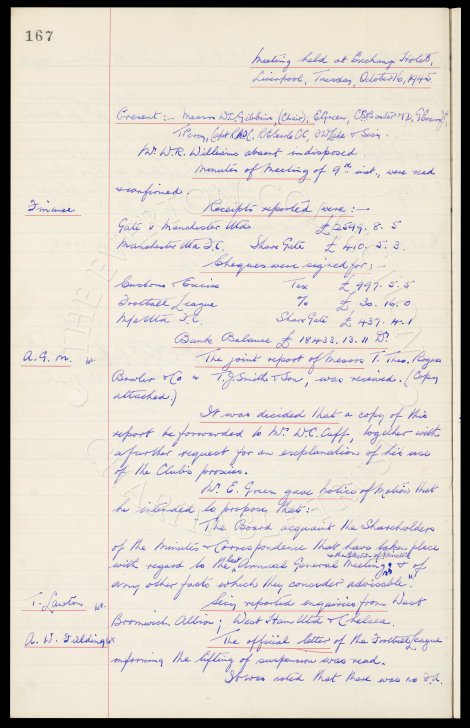 167
Meeting held at Exchange Hotel,
Liverpool, Tuesday, October 16, 1945
Present :- Messrs W.C. Gibbins, (Chair), E. Green, C.S. Baxter M.D.,
T. Percy, R.E. Searle O.C.,
Mr. W.R. Williams absent indisposed.
Minutes of Meeting of 9th inst., were read
& confirmed.
Finance Receipts reported were :-
Gate v Manchester Utd £2599. 8. 5
Manchester Utd F.C. Share Gate £ 410. 5. 3.
Cheques were signed for :-
Customs & Excise Tax £ 997. 5. 5
Football League % £ 30. 16. 0
M/c Utd F.C. Share Gate £ 437. 4. 1
Bank Balance £ 18433. 13. 11 Dr
A. G. M. The joint report of Messrs T. Theo. Rogers
Bowler & Co & T.J. Smith & Son, was received. (Copy
attached.)
It was decided that a copy of this
report be forwarded to Mr. W.C. Cuff, together with
a further request for an explanation of his use
of the Clubs proxies.
Mr. E. Green gave Notice of Motion that
he intended to propose that:-
"The Board acquaint the Shareholders
of the Minutes & Correspondence that have taken place
with regard to the Annual General Meeting & of
any other facts which they consider advisable."
T. Lawton being reported enquiries from West
Bromwich Albion; West Ham Utd & Chelsea.
A. W. Fielding The official letter of the Football League
informing the lifting of suspension was read.
It was noted that there was no